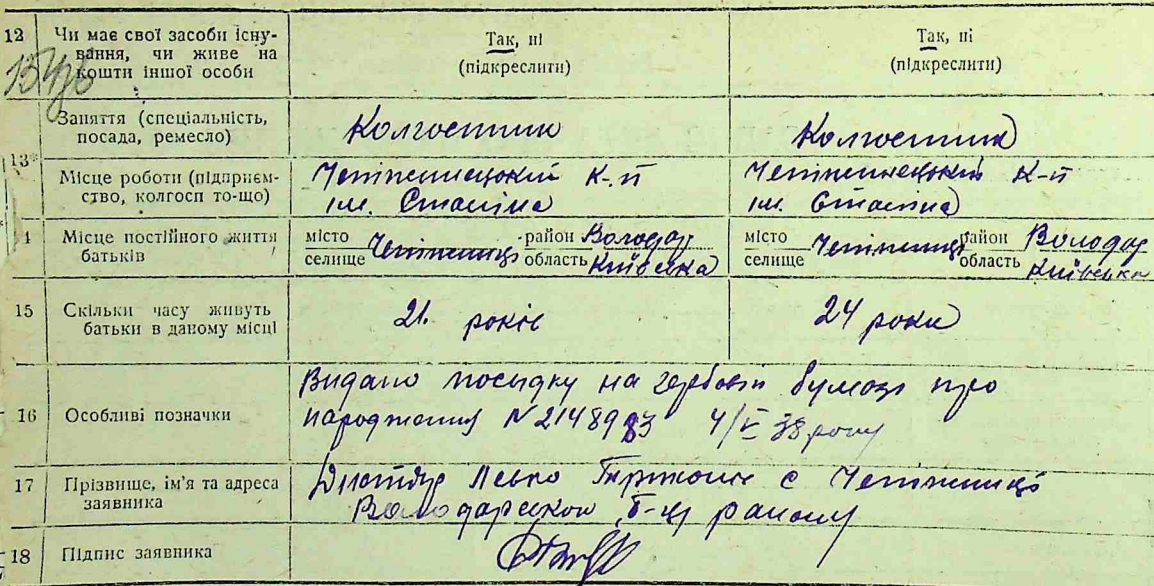 12 Чи має свої засоби існу-
вання, чи живе на
кошти іншої особи
Так, ні
(підкреслити)
Так, ні
(підкреслити)
13* Заняття (спеціальність,
посада, ремесло)
Колгоспник
Колгоспниця
Місце роботи (підприєм-
ство, колгосп то-що)
К-п
ім. Сталіна
К-п
ім. Сталіна
Місце постійного життя
батьків
місто
селище
район Володар
область Київська
місто
селище
район Володар
область Київська
15 Скільки часу живуть
батьки в даному місці
21. років
24 роки
16 Особливі позначки
Видано посвідку на гербовій бумазі про
народження N 2148983 4/V 38 року
17 Прізвище, ім'я та адреса
заявника
Левко с
району
18 Підпис заявника